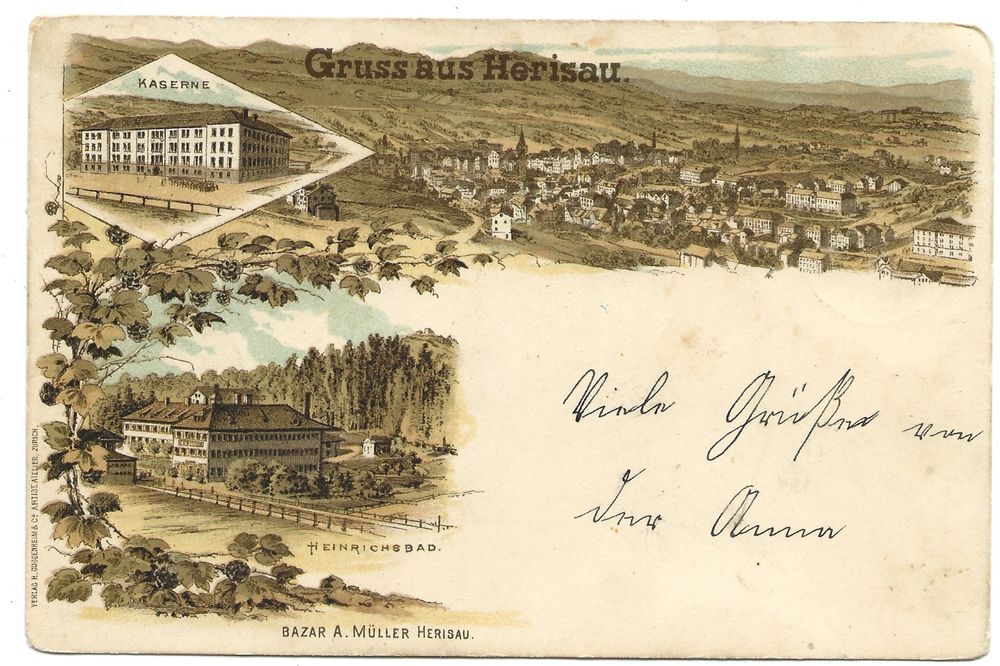 Gruss aus Herisau.
KASERNE
Viele Grüße von
der Anna
HEINRICHSBAD.
BAZAR A. MÜLLER HERISAU.
VERLAG H. GUGGENHEIM & Co ARTIST. ATELIER, ZÜRICH.